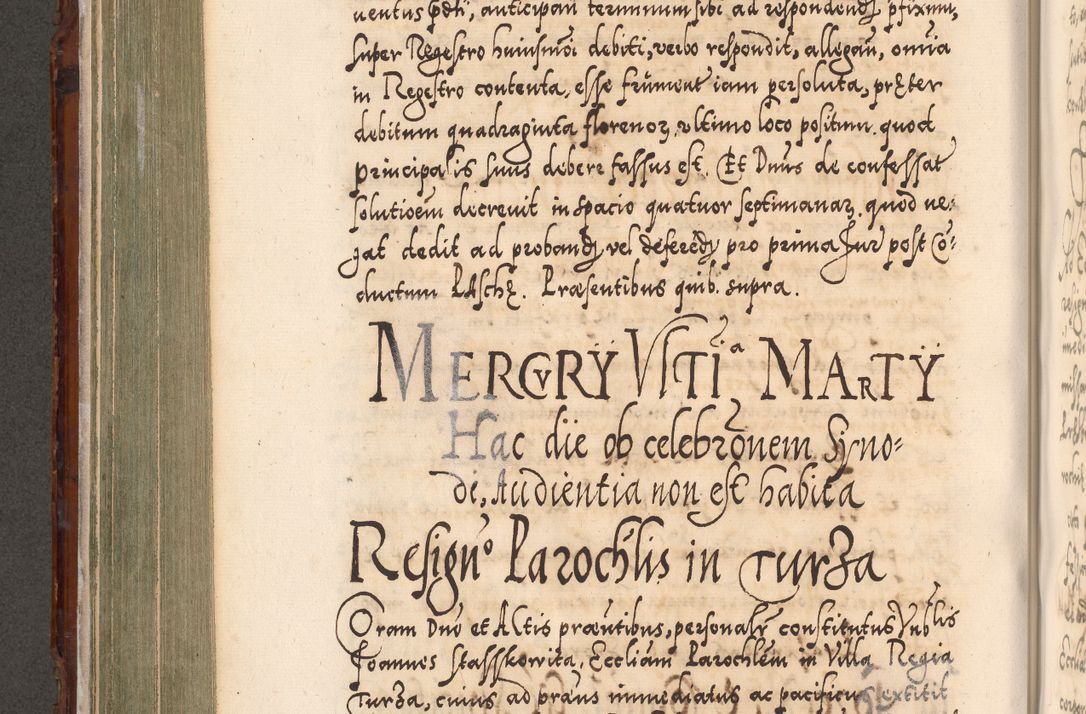 uentus p̃dti, anticipan̄ terminum sibi ad respondendȝ p̃fixum,
super Regestro huiusmōi debiti, verbo respondit, allegan̄, omia
in Regestro contenta, esse frūment iam persoluta, prȩter
debitum quadraginta florenoꝝ, vltimo loco positum. quod
principalis suus debere fassus est. Et Dnus de confessat
solutioem̄ decreuit in spacio quatuor septimanaꝝ. quod ne-
gat dedit ad probandȝ vel deferedȝ pro prima Jur post Cō-
ductum PAschȩ. Præsentibus quib. supra.
MERCVRŸ VLTIa MARTŸ
Hac die ob celebrōnem Syno-
di, Audientia non est habita
Resigno Parochlis in Turza
Coram Dno et Actis præntibus, personalr̄ constitutus Hnblis
Joannes Stasskowita, Eccliam̄ Parochlem in Villa Regia
Turza, cuius ad præns immediatus ac pacificus extitit